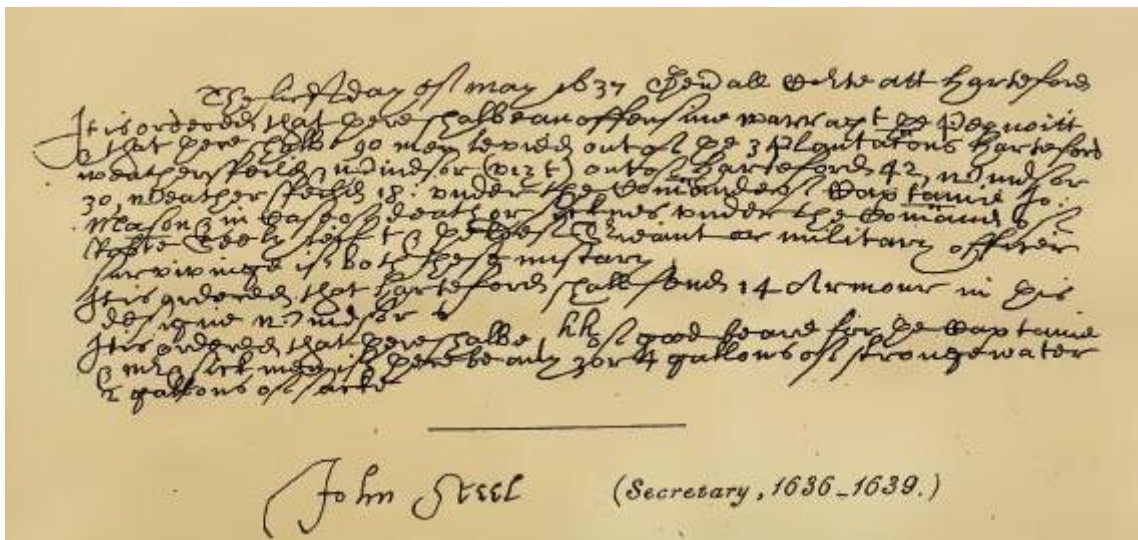 The first day of May 1637 Genall Corte att Harteford
It is ordered that there shalbe an offensive warr agt the Pequoitt
& that there shalbe 90 men levied out of the 3 Plantacons Harteford
weathersfeild & Windsor (vizt) out of Harteford 42, Windsor
30, Weathersfeild 18: under the Comande of Captaine Jo:
Mason & in Case of death or sicknes under the Comand of
Robte Seely Leift & the Srieant or military officer
survivinge if both these miscary
It is ordered that Harteford shall send 14 Armour in this
designe Windsor 6
It is ordered that there shalbe hh of good beare for the Captaine
& mr & sick men if there be only 3 or 4 gallons of stronge water
2 gallons of sacke
John Steel (Secretary, 1636-1639.)